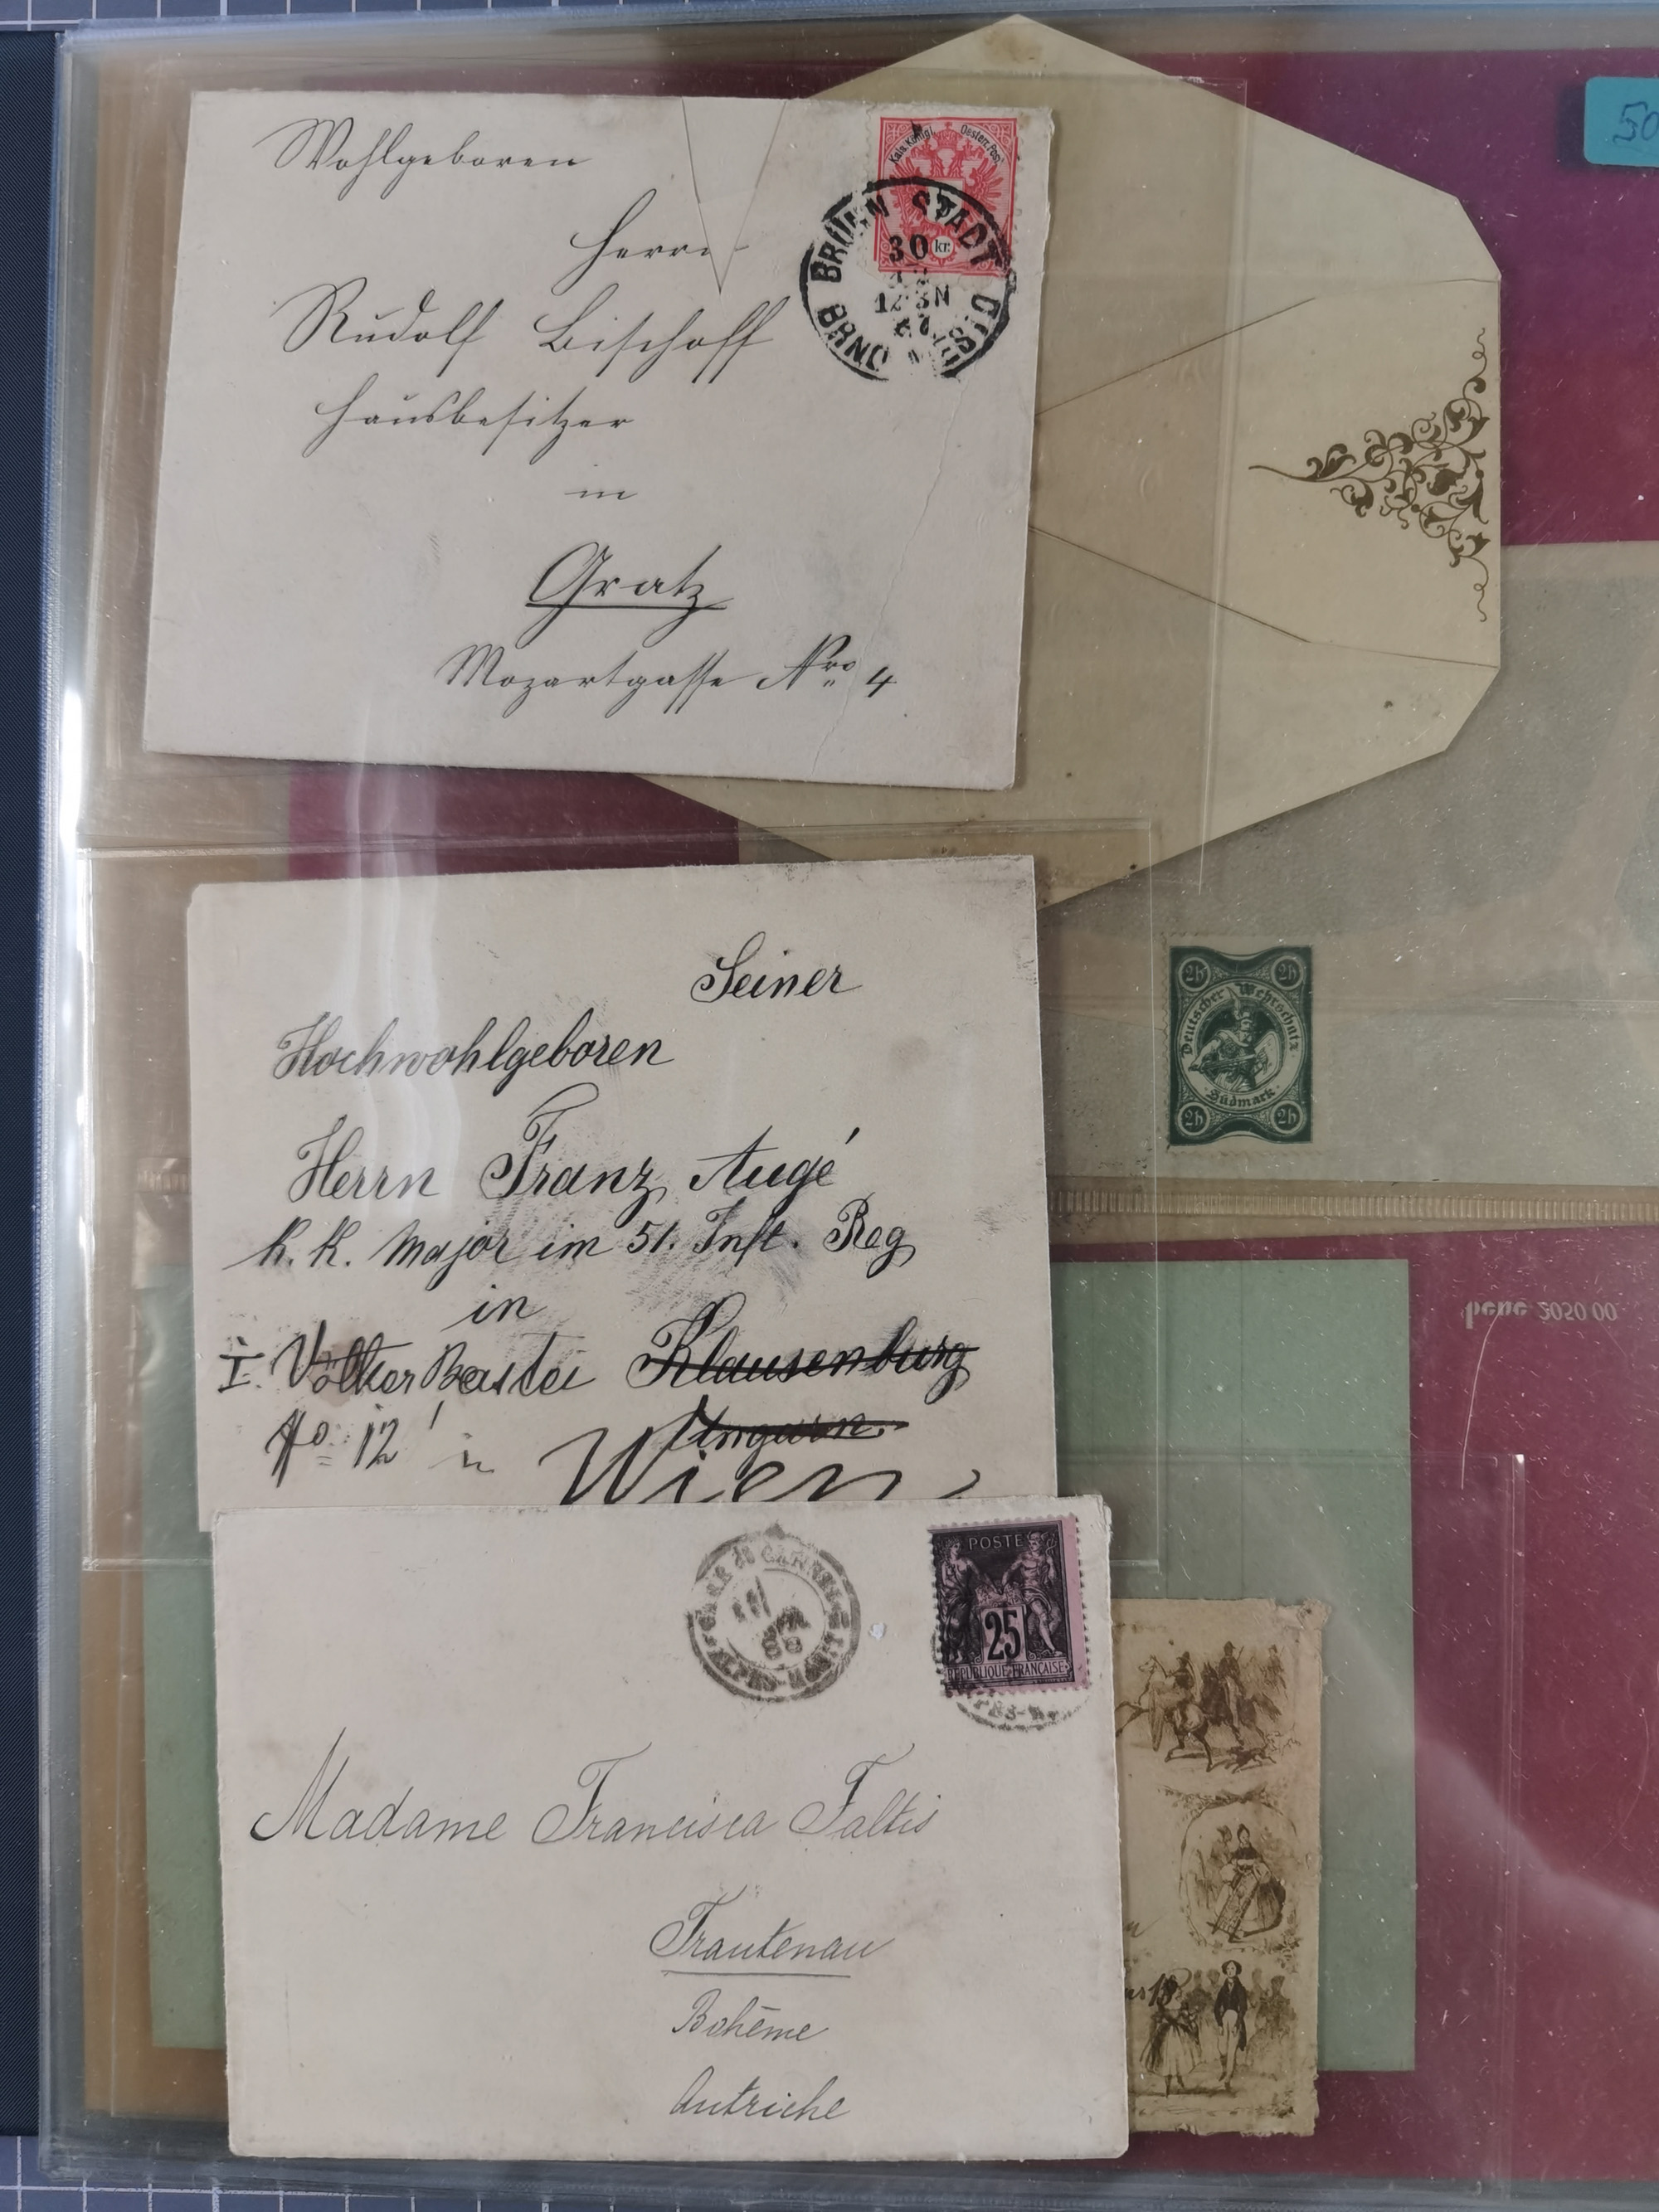 50
Wohlgeboren
Herrn
Rudolf Bischoff
Hausbesitzer
in
Gratz
Mozartgasse Nro 4
Kais. Königl. Oesterr. Post
kr.
BRÜNN STADT
30
BRNO
Seiner
Hochwohlgeboren
Herrn Franz Augé
k. k. Major im 51. Inft. Reg
in
I. Völker Bastei Klausenburg
No 12 in Ungarn
Wien
2h 2h
Deutscher Wehrschatz
Südmark
2h 2h
bene 2050 00
POSTE
25
REPUBLIQUE FRANCAISE
Madame Francisca Faltis
Trautenau
Bohême
Autriche